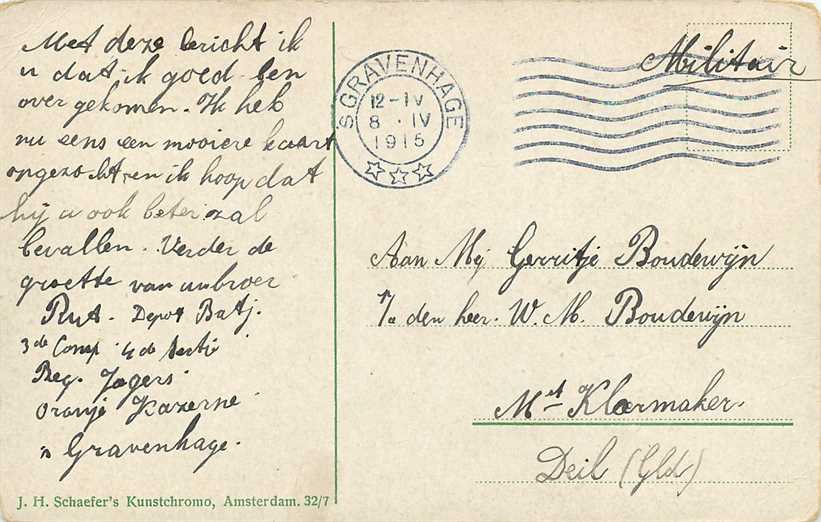 Met deze bericht ik
u dat ik goed ben
over gekomen. Ik heb
nu eens een mooiere kaart
opgezocht en ik hoop dat
hij u ook beter zal
bevallen. Verder de
groette van uw broer
Rut. Depot Batj.
3de Comp 4de Sectie
Reg. Jagers
Oranje Kazerne
's Gravenhage.
J. H. Schaefer's Kunstchromo, Amsterdam. 32/7
S GRAVENHAGE
12-IV
8 . IV
1915
Militair
Aan Mej Gerritje Boudewijn
p/a den heer. W. M. Boudewijn
Mr Kleermaker.
Deil (Gld)